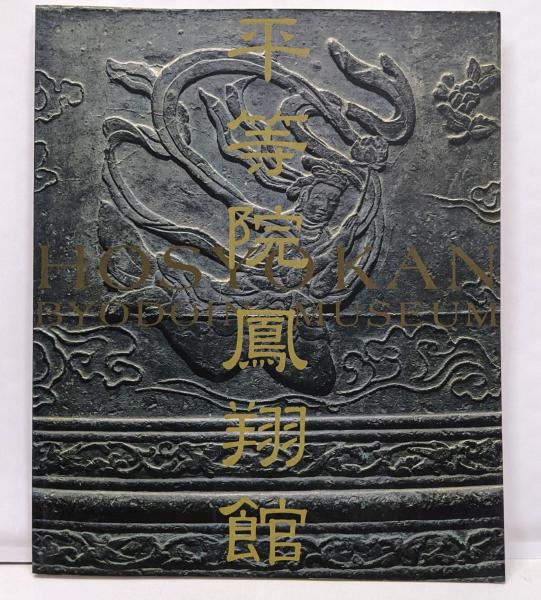 平等院鳳翔館
HOSYOKAN
BYODOIN MUSEUM